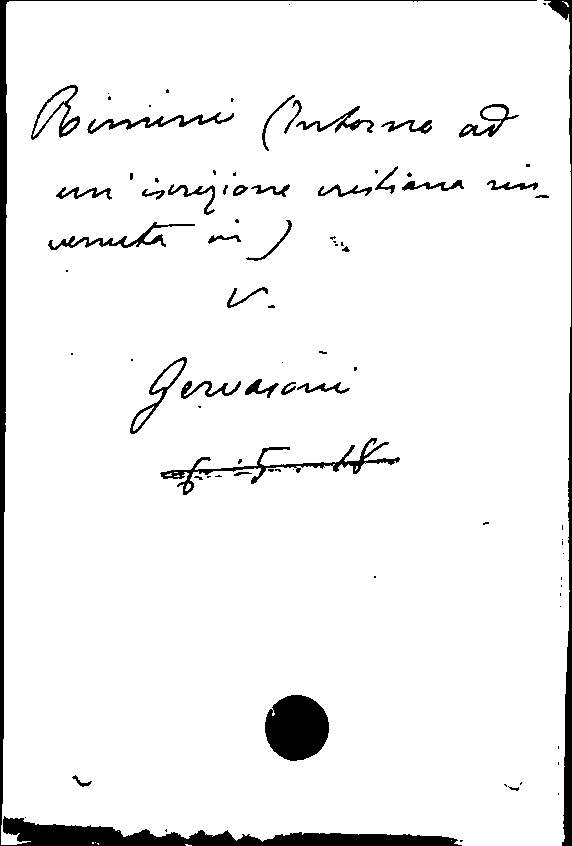 Rimini (Intorno ad
un' iscrizione cristiana rin-
venuta in)
V.
Gervasoni
6 - 5 - 18